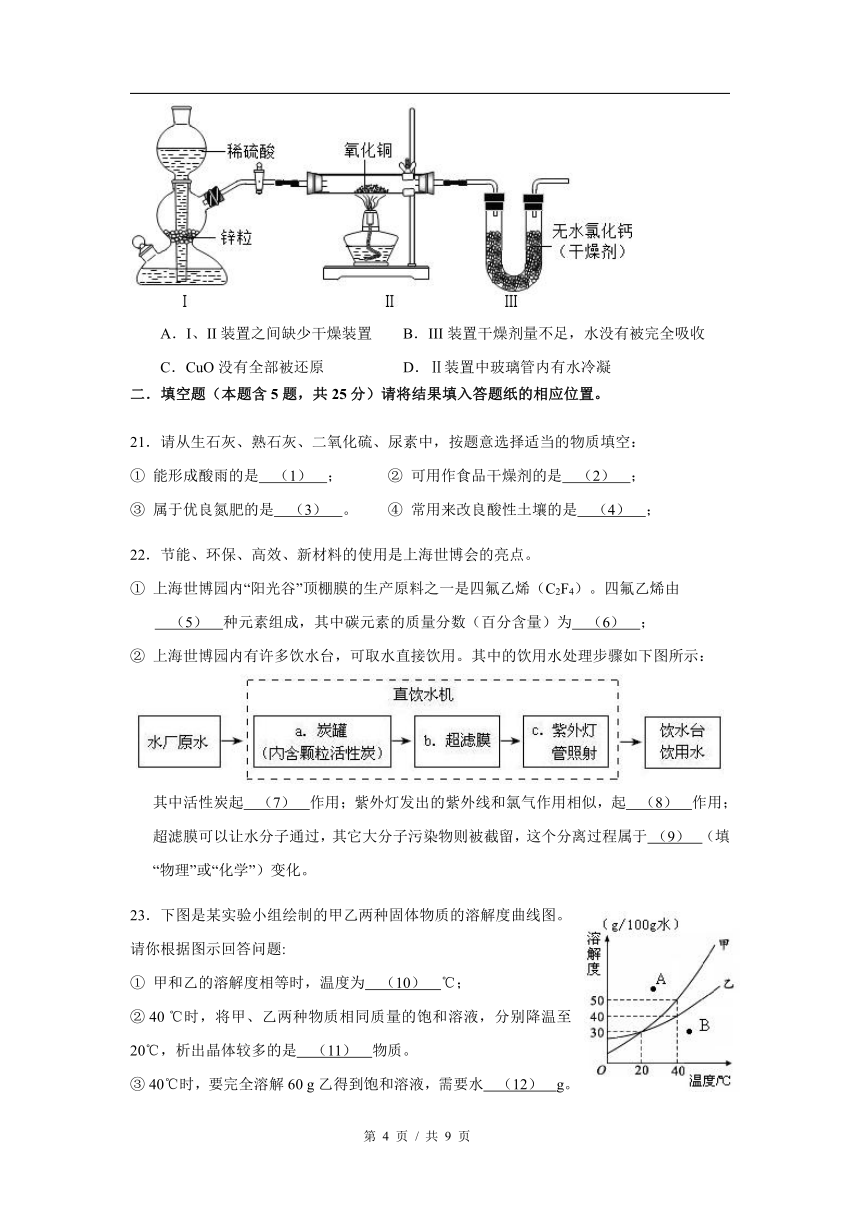 稀硫酸
氧化铜
锌粒
无水氯化钙
（干燥剂）
I
II
III
A．I、II 装置之间缺少干燥装置 B．III 装置干燥剂量不足，水没有被完全吸收
C．CuO 没有全部被还原 D．Ⅱ装置中玻璃管内有水冷凝
二．填空题（本题含 5 题，共 25 分）请将结果填入答题纸的相应位置。
21．请从生石灰、熟石灰、二氧化硫、尿素中，按题意选择适当的物质填空：
① 能形成酸雨的是 （1） ； ② 可用作食品干燥剂的是 （2） ；
③ 属于优良氮肥的是 （3） 。 ④ 常用来改良酸性土壤的是 （4） ；
22．节能、环保、高效、新材料的使用是上海世博会的亮点。
① 上海世博园内“阳光谷”顶棚膜的生产原料之一是四氟乙烯（C₂F₄）。四氟乙烯由
（5） 种元素组成，其中碳元素的质量分数（百分含量）为 （6） ；
② 上海世博园内有许多饮水台，可取水直接饮用。其中的饮用水处理步骤如下图所示：
直饮水机
水厂原水
a. 炭罐
（内含颗粒活性炭）
b. 超滤膜
c. 紫外灯
管照射
饮水台
饮用水
其中活性炭起 （7） 作用；紫外灯发出的紫外线和氯气作用相似，起 （8） 作用；
超滤膜可以让水分子通过，其它大分子污染物则被截留，这个分离过程属于 （9） （填
“物理”或“化学”）变化。
23．下图是某实验小组绘制的甲乙两种固体物质的溶解度曲线图。
请你根据图示回答问题:
① 甲和乙的溶解度相等时，温度为 （10） ℃；
② 40 ℃时，将甲、乙两种物质相同质量的饱和溶液，分别降温至
20℃，析出晶体较多的是 （11） 物质。
③ 40℃时，要完全溶解 60 g 乙得到饱和溶液，需要水 （12） g。
（g/100g水）
溶
解
度
甲
A
乙
50
40
30
B
O
20
40
温度/℃
第 4 页 / 共 9 页